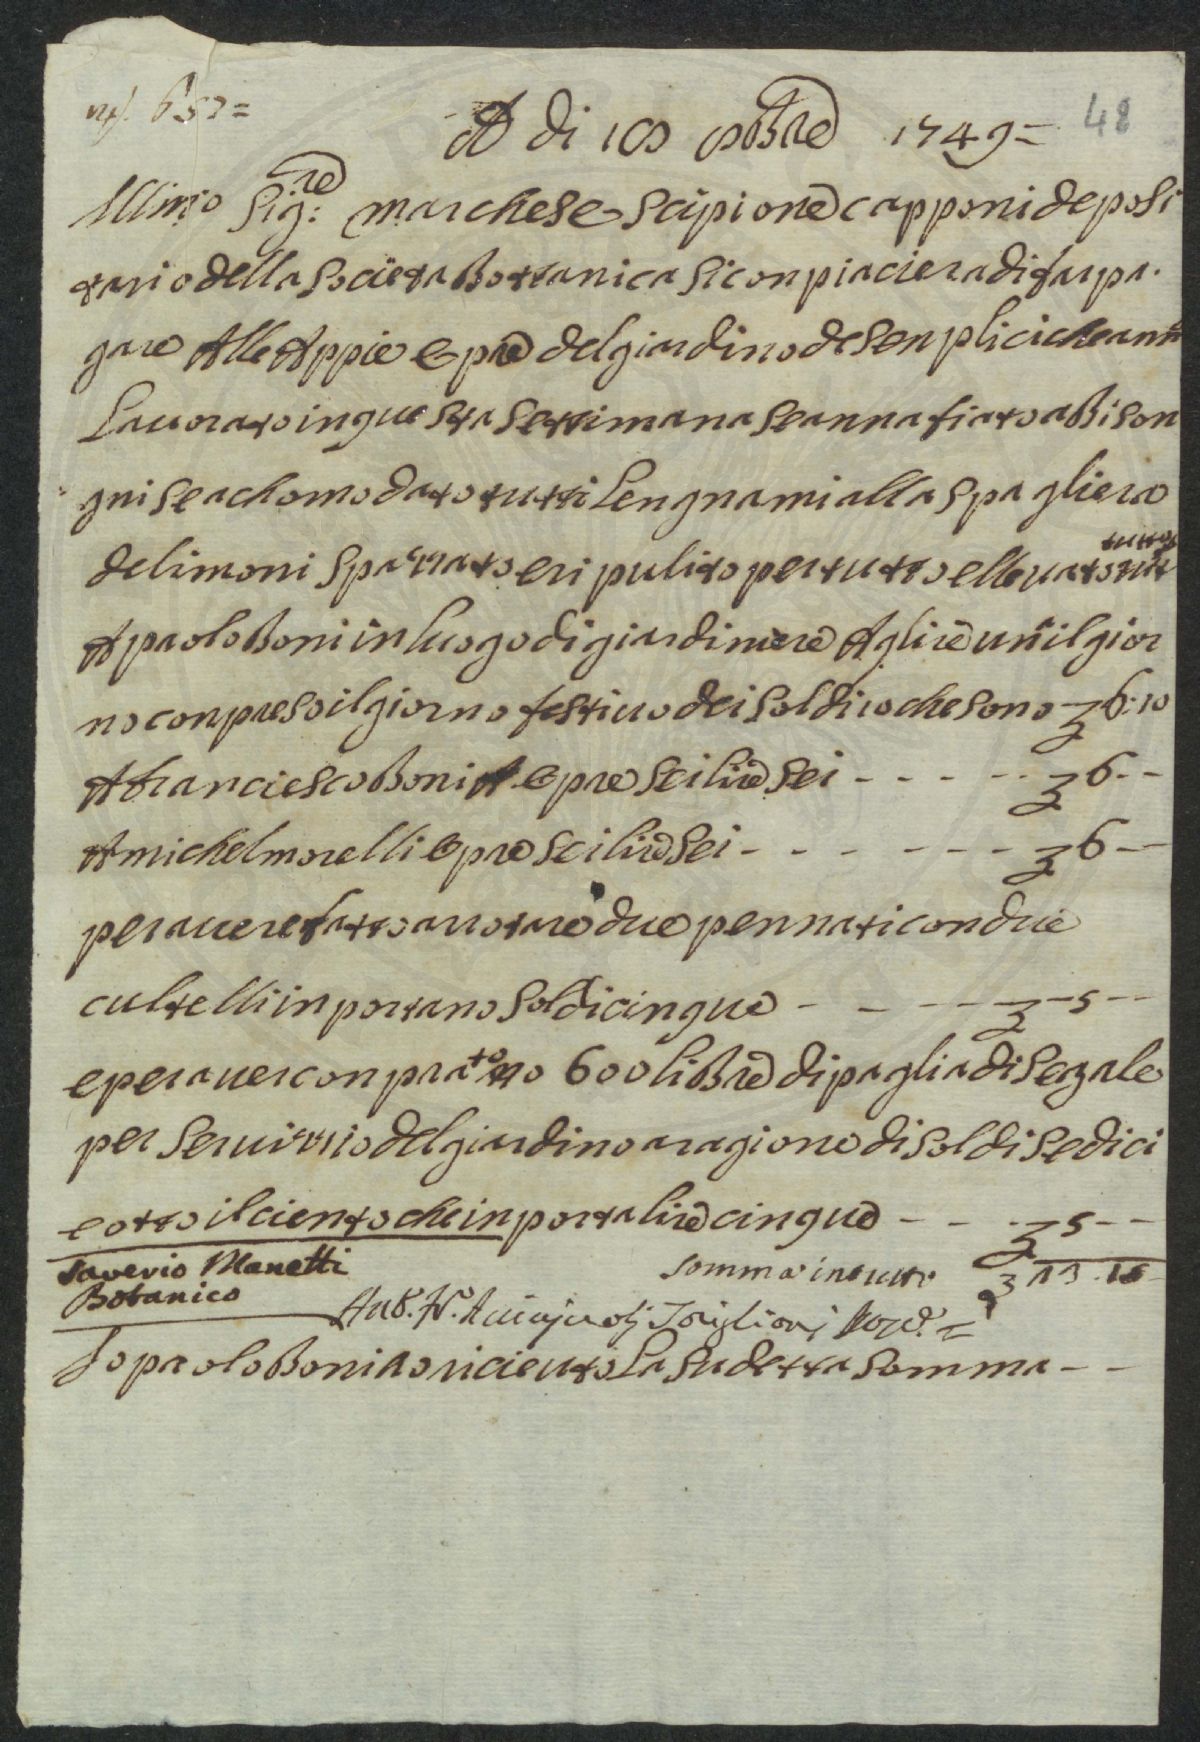 A di 18 9bre 1749=
48
Illmo Sig:re marchese Scipione capponi deposi
tario della Societa Bottanica Si conpiaciera di far pa.
gare Alle Appie Opre del giardino de Senplici che ann
Lavorato in questa Settimana Seannafiato a Bison
gni Seachomodato tutti Lengnami alla Spagliera
de limoni Spazzato eri pulito per tutto ellevato tutto
A paolo Boni in luogo di giardiniere A glire un il gior
no conpreso il giorno festivo dei Soldi 10 che sono 6:10
A franciesco Boni Opre sei lire Sei - - - - - 6 - -
A michel morelli Opre sei lire Sei - - - - - - - 6 - -
per avere fatto arrotare due pennati con due
cultelli inportano Soldi cinque - - - - - 5 - -
e per aver conprato no 600 libre di paglia di Segale
per Servizzio del giardino a ragione di Soldi Sedici
e otto il ciento che inporta lire cinque - - - 5 - -
Saverio Manetti
Botanico
Somma in tutto
Io paolo Boni o ricieuto La Sudetta Somma - -